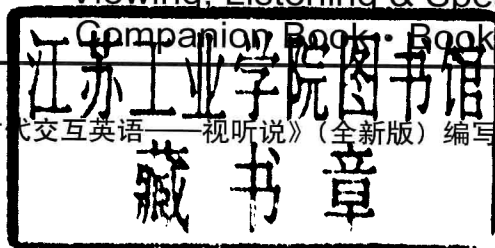 Viewing, Listening & Spe
Companion Book · Book
江苏工业学院图书馆
代交互英语——视听说》（全新版）编写
藏书章